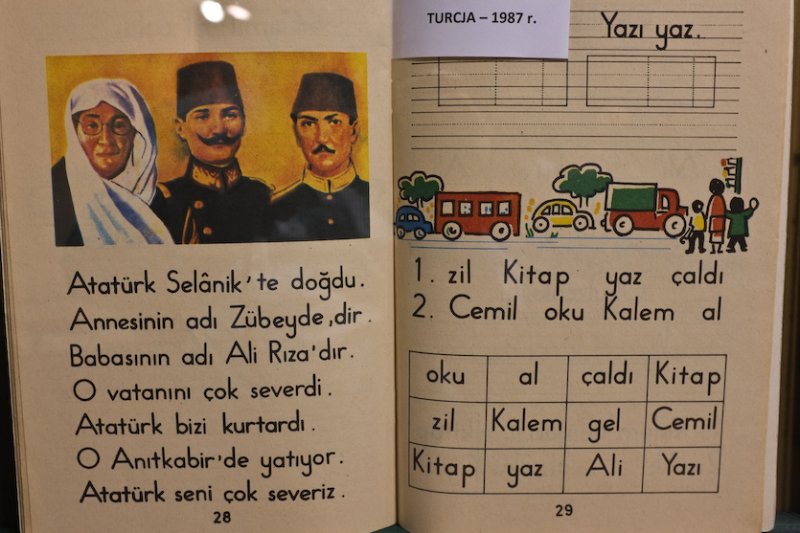 Atatürk Selânik'te doğdu.
Annesinin adı Zübeyde,dir.
Babasının adı Ali Rıza'dır.
O vatanını çok severdi.
Atatürk bizi kurtardı.
O Anıtkabir'de yatıyor.
Atatürk seni çok severiz.
28
TURCJA – 1987 r.
Yazı yaz.
1. zil Kitap yaz çaldı
2. Cemil oku Kalem al
oku al çaldı Kitap
zil Kalem gel Cemil
Kitap yaz Ali Yazı
29